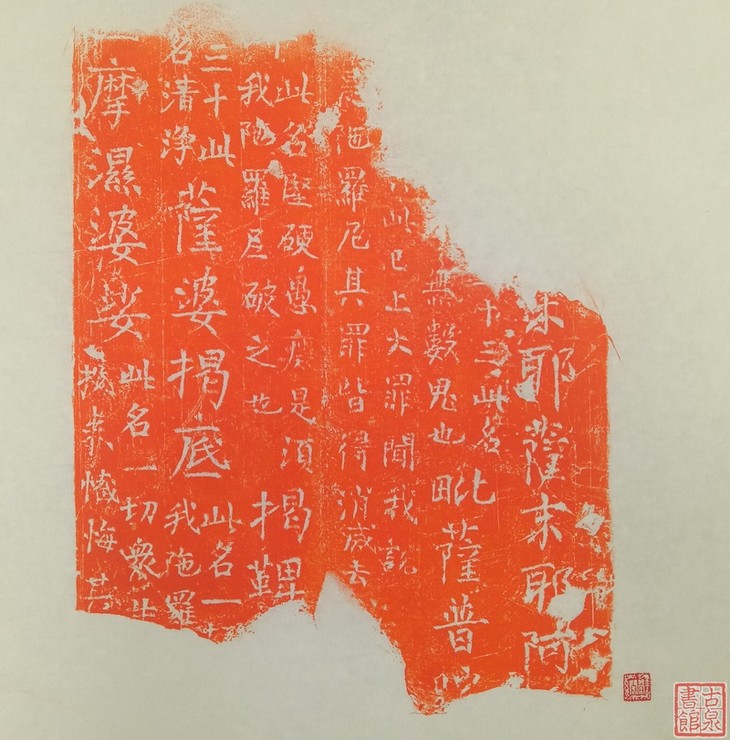 末耶薩末耶阿
十三此名
無數鬼也
毗薩普
此已上大罪聞我說
是陁羅尼其罪皆得消滅去
此名堅硬愚癡是須
我陁羅尼破之也
揭鞞
三十此
名清淨
薩婆揭底
此名一
我陁羅
摩濕婆娑
此名一切衆生
来懺悔其
古泉書館